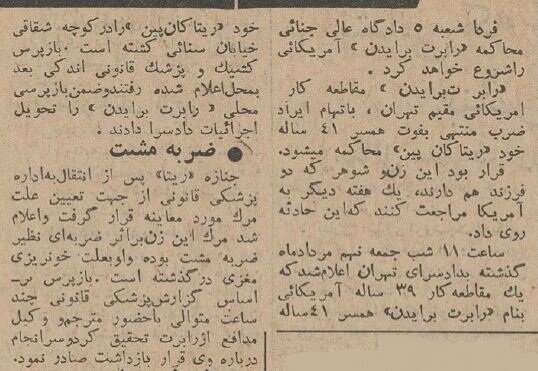 فردا شعبه ۵ دادگاه عالی جنائی
محاکمه «رابرت برایدن» آمریکائی
راشروع خواهد کرد .
«رابر تبرایدن» مقاطعه کار
امریکائی مقیم تهران ، باتهام ایراد
ضرب منتهی بفوت همسر ۴۱ ساله
خود «ریتاکان پین» محاکمه میشود.
قرار بود این زن‌و شوهر که دو
فرزند هم دارند، یك هفته دیگر به
آمریکا مراجعت کنند که‌این حادثه
روی داد.
ساعت ۱۱ شب جمعه نهم مردادماه
گذشته بدادسرای تهران اعلام‌شدکه
یك مقاطعه‌کار ۳۹ ساله آمریکائی
بنام «رابرت برایدن» همسر ۴۱ساله
خود «ریتاکان‌پین »رادرکوچه شقاقی
خیابان سنائی کشته است .بازپرس
کشیك و پزشك قانونی اندکی بعد
بمحل‌اعلام شده رفتندوضمن‌بازپرسی
محلی « رابرت برایدن » را تحویل
اجرائیات دادسرا دادند .
● ضربه مشت
جنازه «ریتا» پس از انتقال‌به‌اداره
پزشکی قانونی از جهت تعیین علت
مرك مورد معاینه قرار گرفت واعلام
شد مرك این زن‌براثر ضربه‌ای نظیر
ضربه مشت بوده واوبعلت خونریزی
مغزی درگذشته است .بازپرس بر_
اساس گزارش‌پزشکی قانونی چند
ساعت متوالی باحضور مترجم‌و وکیل
مدافع ازرابرت تحقیق کردوسرانجام
درباره وی قرار بازداشت صادر نمود.